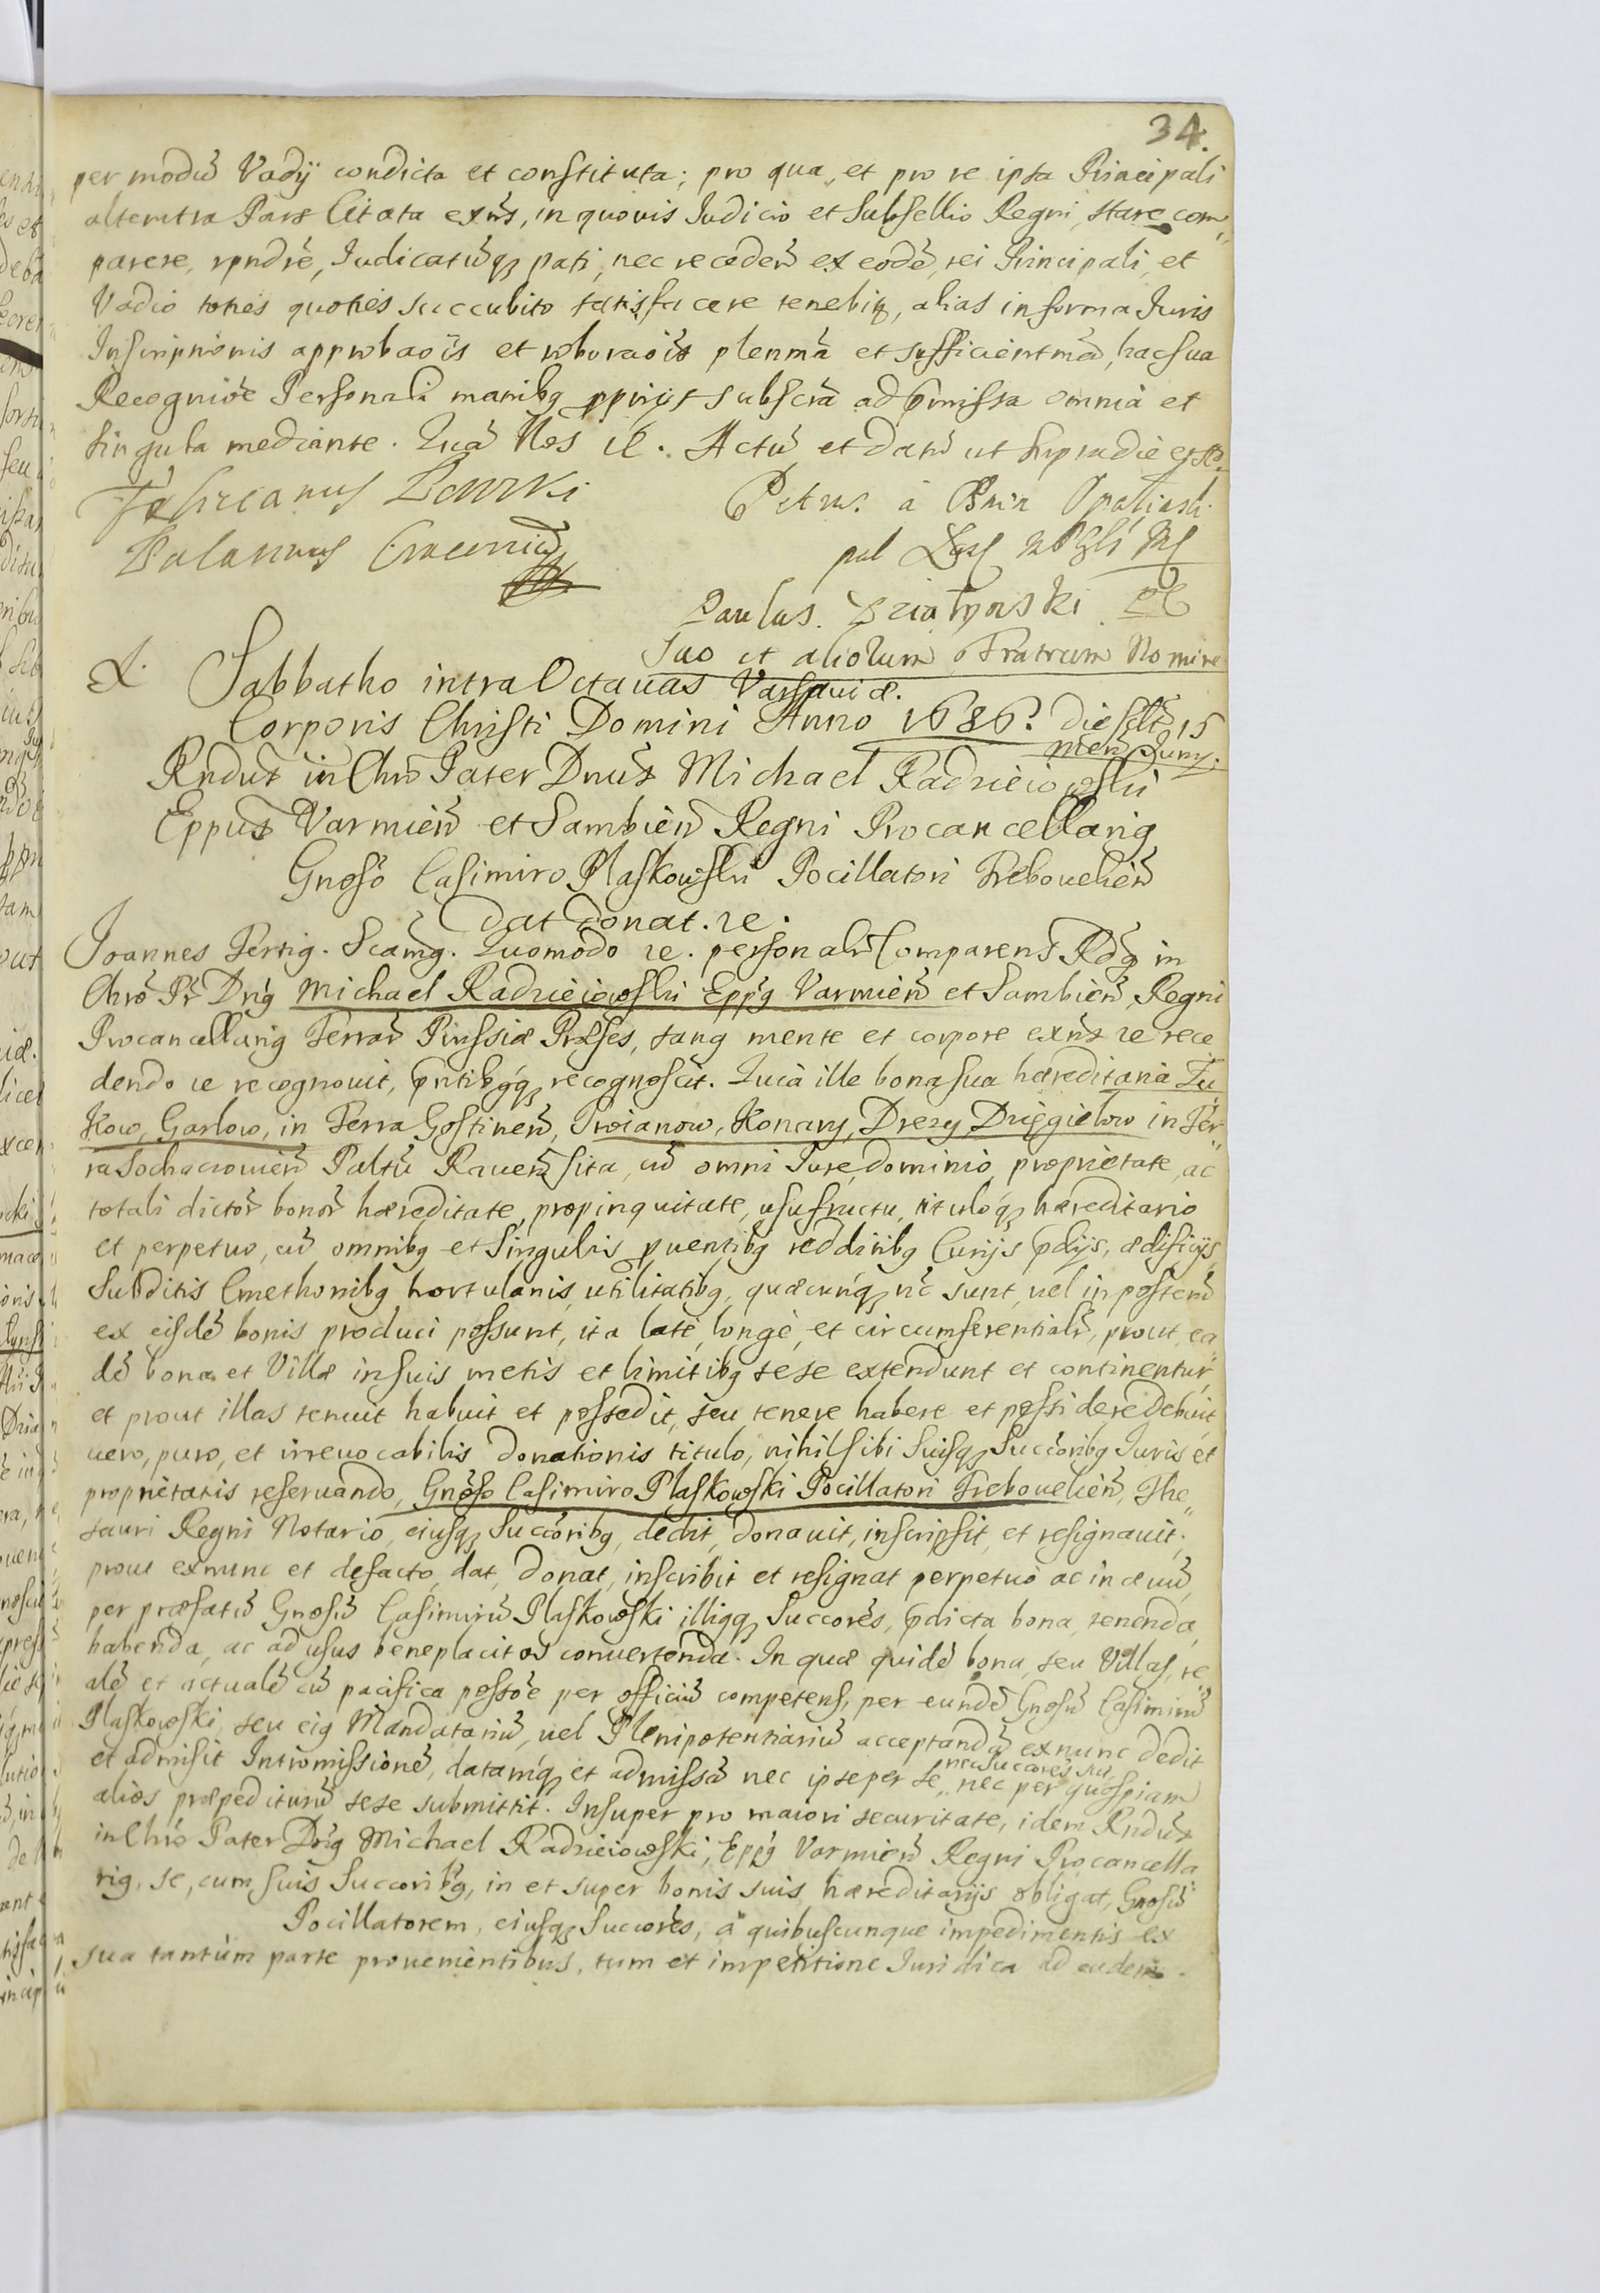 34.
per modũ Vadij condicta et constituta; pro qua, et pro re ipsa Principali
alterutra Pars Citata exñs, in quovis Iudicio et Subsellio Regni, stare com„
parere, rpndrẽ, Iudicatũq₃ pati, nec recedeñ ex eodẽ, rei Principali, et
Vadio toties quoties succubito satisfacere tenebiṯ, alias in forma Iuris
Inscriptionis approbaõis et roboraõis plenmã et sufficientmã, hac sua
Recogniõe Personali manibq pprijs subscrã ad p̃missa omnia et
singula mediante. Quã Nos rc. Actũ et Datũ ut supra die et Ao
Petrus à Bnin Opalinski
Paulus Działynski
Suo et aliorum Fratrum Nomine
Sabbatho intra Octavas Varsaviæ.
Corporis Christi Domini Anno 1686? die scltẽ 15
meñ Juny.
Rndus in Chrõ Pater Dnus Michael Radzieiowski
Eppus Varmieñ et Sambieñ Regni Procancellariq
Gnoso Casimiro Plaskowski Pocillatori Trebovelieñ
dat donat. rc.
Joannes Tertiq. Scãmq. Quomodo rc. personalr̃ Comparens Rd̃q in
Chrõ Pr̃ Dñq Michael Radzieiowski Eppq Varmieñ et Sambieñ, Regni
Procancellariq Terrar̃ Prussiæ Præses, sanq mente et corpore exñs rc rece
dendo rc recognovit, p̃ntibq́q₃ recognoscit. Quia ille bona sua hæreditaria Lu
kow, Garlow, in Terra Gostineñ, Troianow, Konary, Drezy, Dzięgielow in Ter„
ra Sochaczovieñ Paltũ Raveñ sita, cũ omni Iure, dominio, proprietate, ac
totali dictor̃ bonor̃ hæreditate, propinquitate, usufructu, tituloq́₃ hæreditario
et perpetuo, cũ omnibq et singulis pventibq redditibq Curijs p̃dijs, ædificijs,
Subditis Cmethonibq hortulanis, utilitatibq, quæcunq́₃ nc̃ sunt, vel in posterũ
ex eisdẽ bonis produci possunt, ita latè, longè, et circumferentialr̃, prout ea„
dẽ bona et Villæ in suis metis et limitibq sese extendunt et continentur,
et prout illas tenuit habuit et possedit, seu tenere habere et possidere debuit,
vero, puro, et irrevocabilis donationis titulo, nihil sibi suisq₃ Succoribq Iuris et
proprietatis reservando, Gnõso Casimiro Plaskowski Pocillatori Trebovelieñ, The„
sauri Regni Notario, eiusq₃ Succoribq, dedit, donavit, inscripsit, et resignavit;
prout exnunc et defacto, dat, donat, inscribit et resignat perpetuò ac in ævũ,
per præfatũ Gnosũ Casimirũ Plaskowski illiqq₃ Succores, p̃dicta bona, tenenda,
habenda, ac ad usus beneplacitos convertenda. In quæ quidẽ bona, seu Villas, re
alẽ et actualẽ cũ pacifica possõe per officiũ competens, per eundẽ Gnosũ Casimirũ
Plaskowski, seu eiq Mandatariũ, vel Plenipotentiariũ acceptandã exnunc dedit
et admisit Intromissionẽ, datamq́₃ et admissã nec ipse per se „nec Succores sui„ nec per quospiam
alios præpediturũ sese submittit. Insuper pro maiori securitate, idem Rndus
in Chrõ Pater Dñq Michael Radzieiowski, Eppq Varmieñ Regni Procancella
riq, se, cum suis Succoribq, in et super bonis suis hæreditarijs obligat, Gnosũ
Pocillatorem, eiusq₃ Succores, à quibuscunque impedimentis ex
sua tantùm parte provenientibus, tum et impetitione Iuridica ad eadem